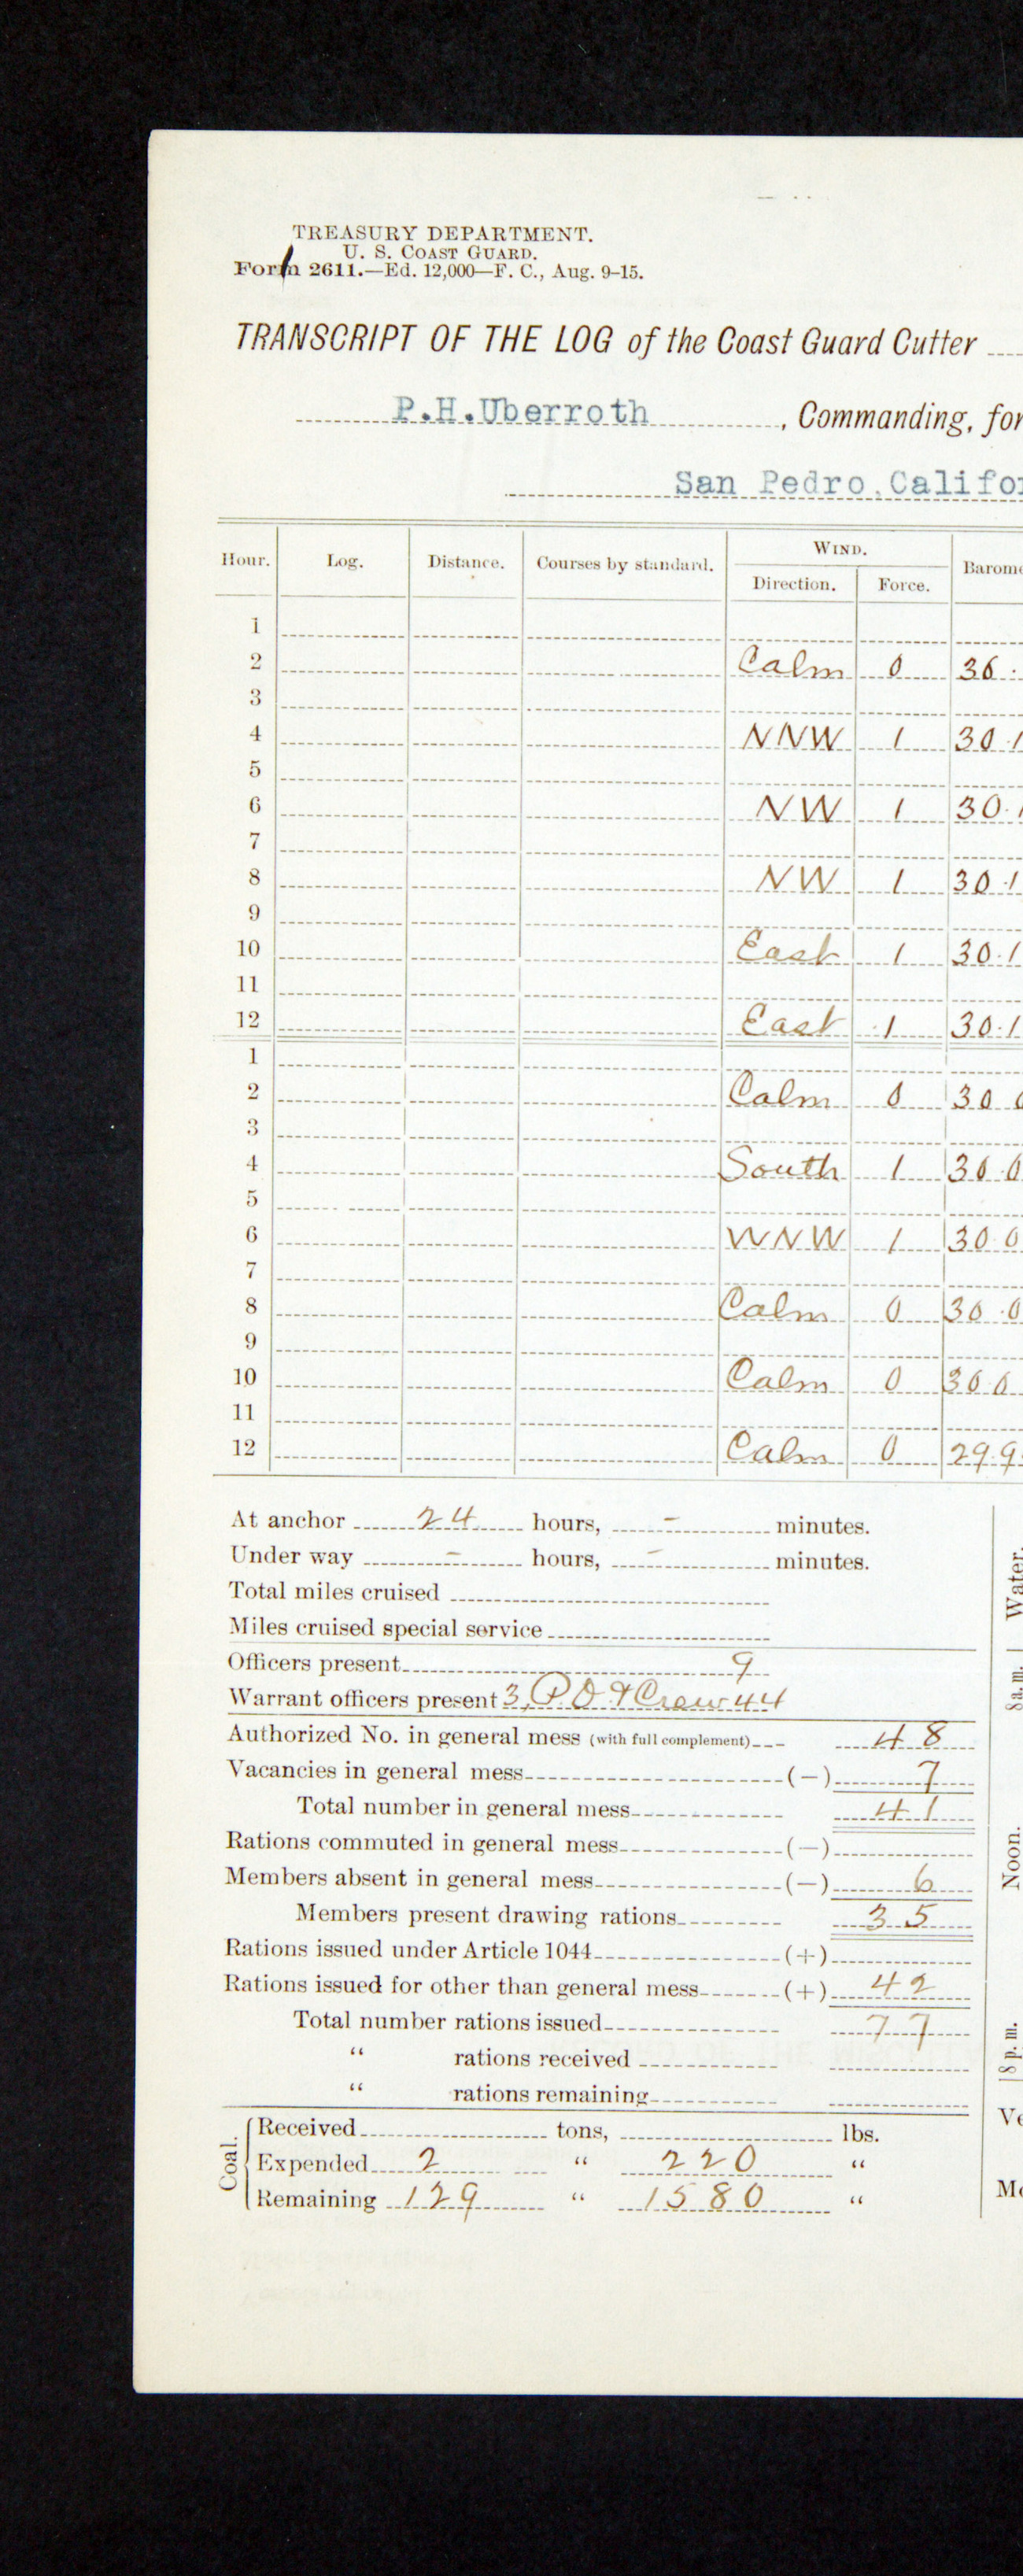 TREASURY DEPARTMENT.
U. S. COAST GUARD.
Form 2611.—Ed. 12,000—F. C., Aug. 9-15.
TRANSCRIPT OF THE LOG of the Coast Guard Cutter
P.H.Uberroth, Commanding, for
San Pedro, Califor
WIND.
Hour. Log. Distance. Courses by standard. Direction. Force. Barome
1
2 Calm 0 30.
3
4 NNW 1 30.1
5
6 NW 1 30.1
7
8 NW 1 30.1
9
10 East 1 30.1
11
12 East 1 30.1
1
2 Calm 0 30 0
3
4 South 1 30.0
5
6 WNW 1 30 0
7
8 Calm 0 30.0
9
10 Calm 0 30 0
11
12 Calm 0 29.9
At anchor 24 hours, - minutes.
Under way - hours, - minutes.
Total miles cruised
Miles cruised special service
Officers present 9
Warrant officers present 3, P.O. & Crew 44
Authorized No. in general mess (with full complement) 48
Vacancies in general mess (—) 7
Total number in general mess 41
Rations commuted in general mess (—)
Members absent in general mess (—) 6
Members present drawing rations 35
Rations issued under Article 1044 (+)
Rations issued for other than general mess (+) 42
Total number rations issued 77
" rations received
" rations remaining
Coal.
Received tons, lbs.
Expended 2 " 220 "
Remaining 129 " 1580 "
Water.
8 a.m.
Noon.
8 p.m.
Ve
Mo